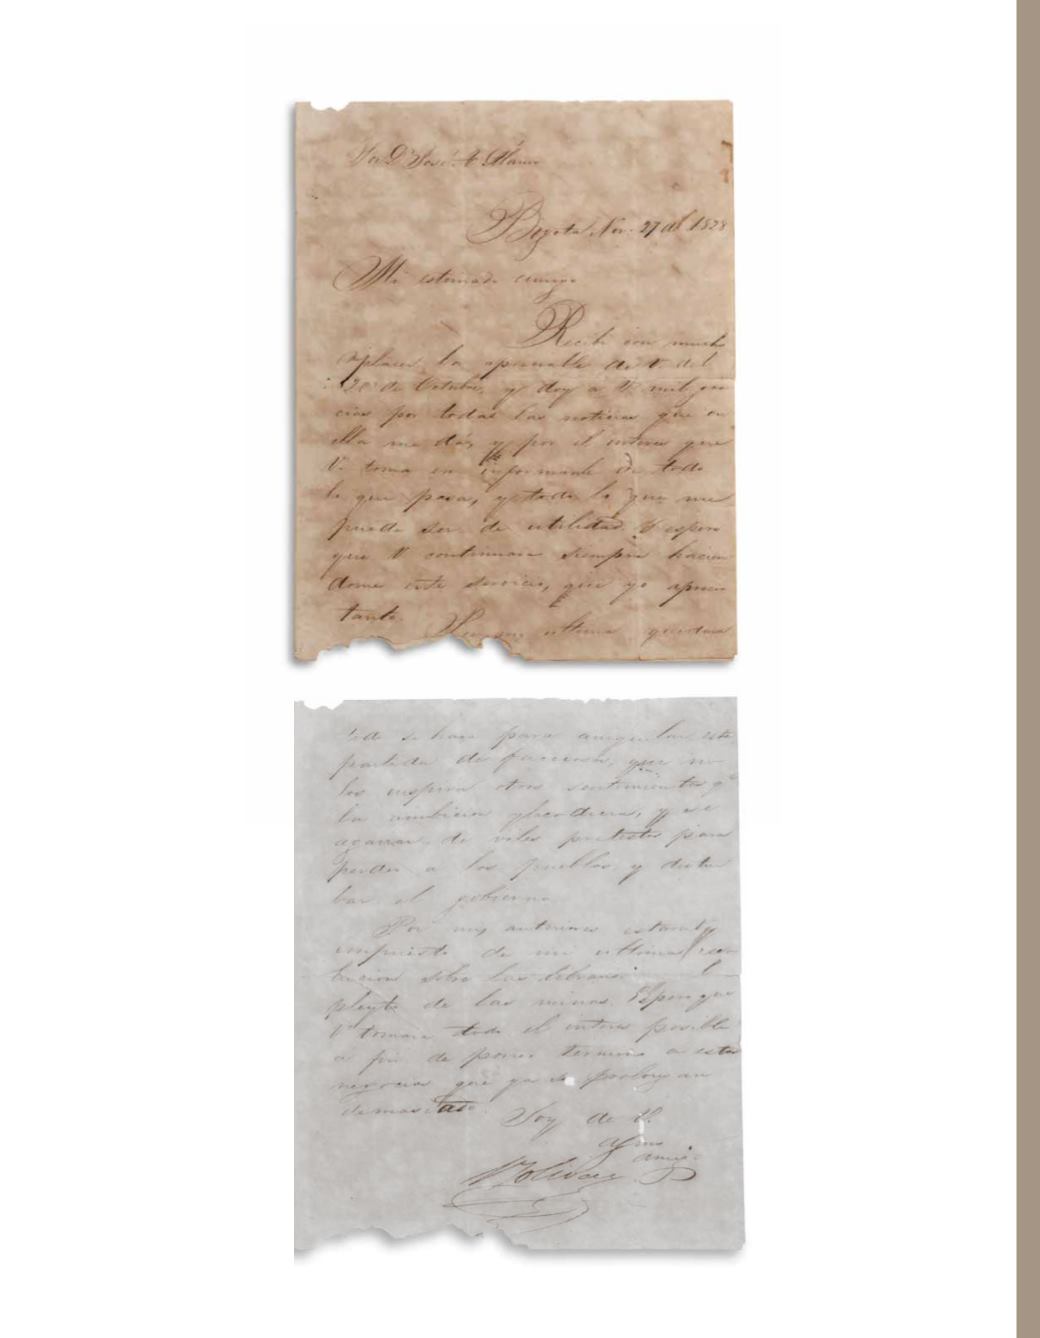 Sor Dn José A. Alamo
Bogota Nov. 27 de 1828
Mi estimado amigo
Recibi con mucho
placer la apreciable de V. del
20 de Octubre, y doy a V. mil gra
cias por todas las noticias que en
ella me dá, y por el interes que
V. toma en informarle de todo
lo que pasa, y todo lo que me
puede ser de utilidad. Y espero
que V continuara siempre hacien
dome este servicio, que yo aprecio
tanto.
ultima
se hace para este
partido de facciosos, que no
los inspira otros sentimientos q.e
la ambicion y la codicia, y se
agarran de viles pretestos para
perder a los pueblos y distur
bar el gobierno.
Por mis anteriores estara V.
impuesto de mi ultima reso
lucion sobre las
pleyto de las minas. Espero que
V tomara todo el interes posible
a fin de poner termino a estos
negocios que ya se prolongan
demasiado. Soy de V.
afmo
amigo
Bolivar